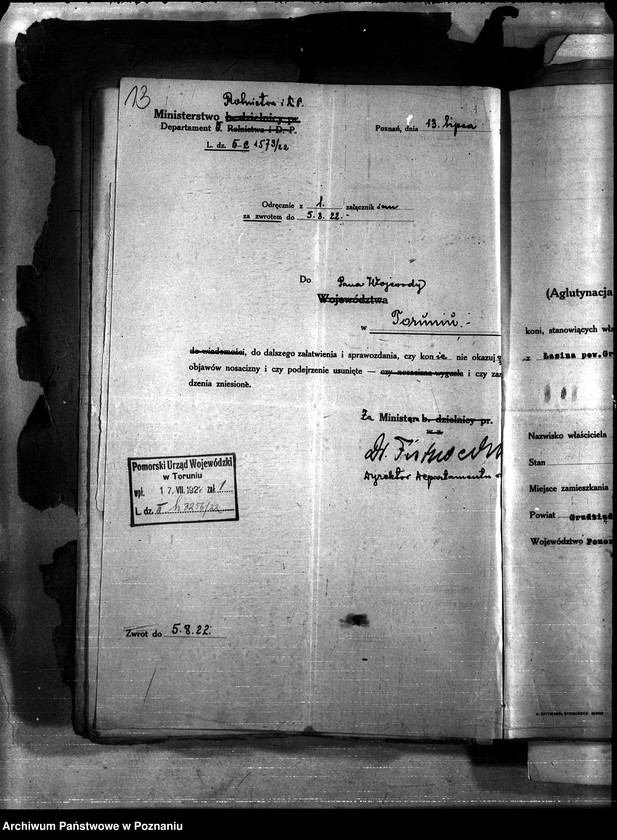 13
Rolnictwa i D.P.
Ministerstwo b. dzielnicy pr.
Departament V. Rolnictwa i D. P.
L. dz. 1573/22
Poznań, dnia 13. lipca
Odręcznie z 1. załącznik iem
za zwrotem do 5.8.22.-
Do Pana Wojewody
Województwa
w Toruniu.-
do wiadomości, do dalszego załatwienia i sprawozdania, czy konie nie okazują
objawów nosacizny i czy podejrzenie usunięte — czy nosacizna wygasła i czy
dzenia zniesione.
Za Ministra b. dzielnicy pr.
Dyrektor Departamentu
Pomorski Urząd Wojewódzki
w Toruniu
wpł. 17. VII. 1922 zał. 1
L. dz.
Zwrot do 5.8.22.
(Aglutynacja
koni, stanowiących
z Łasina pow.Gr
Nazwisko właściciela
Stan
Miejsce zamieszkania
Powiat Grudziąd
Województwo Pomor
A. DITTMANN, BYDGOSZCZ
Archiwum Państwowe w Poznaniu